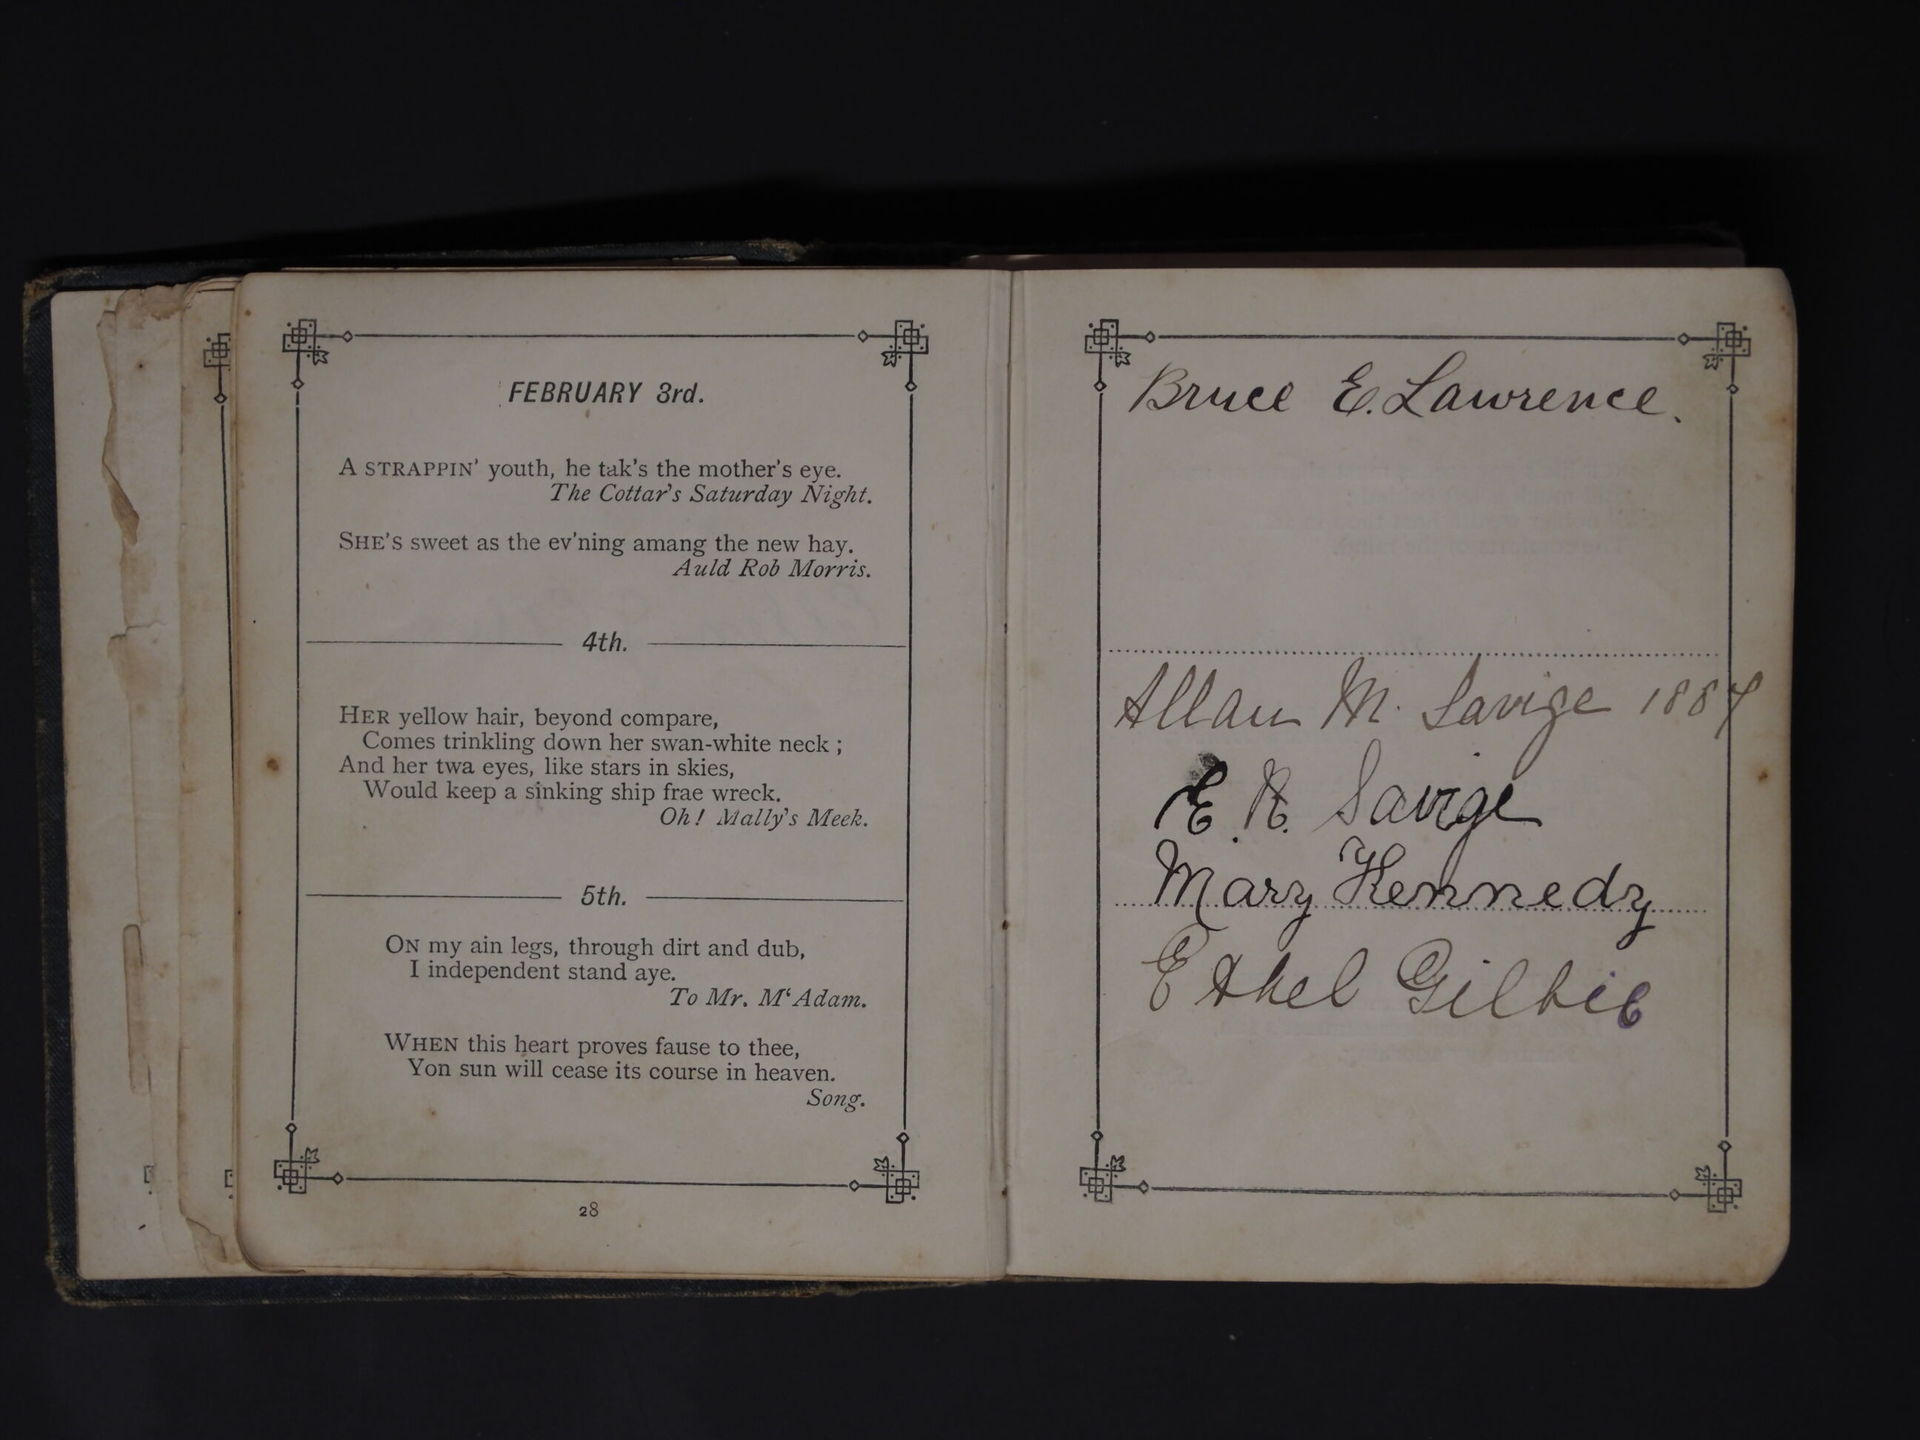 FEBRUARY 3rd.
A STRAPPIN' youth, he tak's the mother's eye.
The Cottar's Saturday Night.
SHE'S sweet as the ev'ning amang the new hay.
Auld Rob Morris.
4th.
HER yellow hair, beyond compare,
Comes trinkling down her swan-white neck ;
And her twa eyes, like stars in skies,
Would keep a sinking ship frae wreck.
Oh! Mally's Meek.
5th.
ON my ain legs, through dirt and dub,
I independent stand aye.
To Mr. M‘Adam.
WHEN this heart proves fause to thee,
Yon sun will cease its course in heaven.
Song.
28
Bruce E. Lawrence.
Allan M. Savige 1887
E. R. Savige
Mary Kennedy
Ethel Gilbie